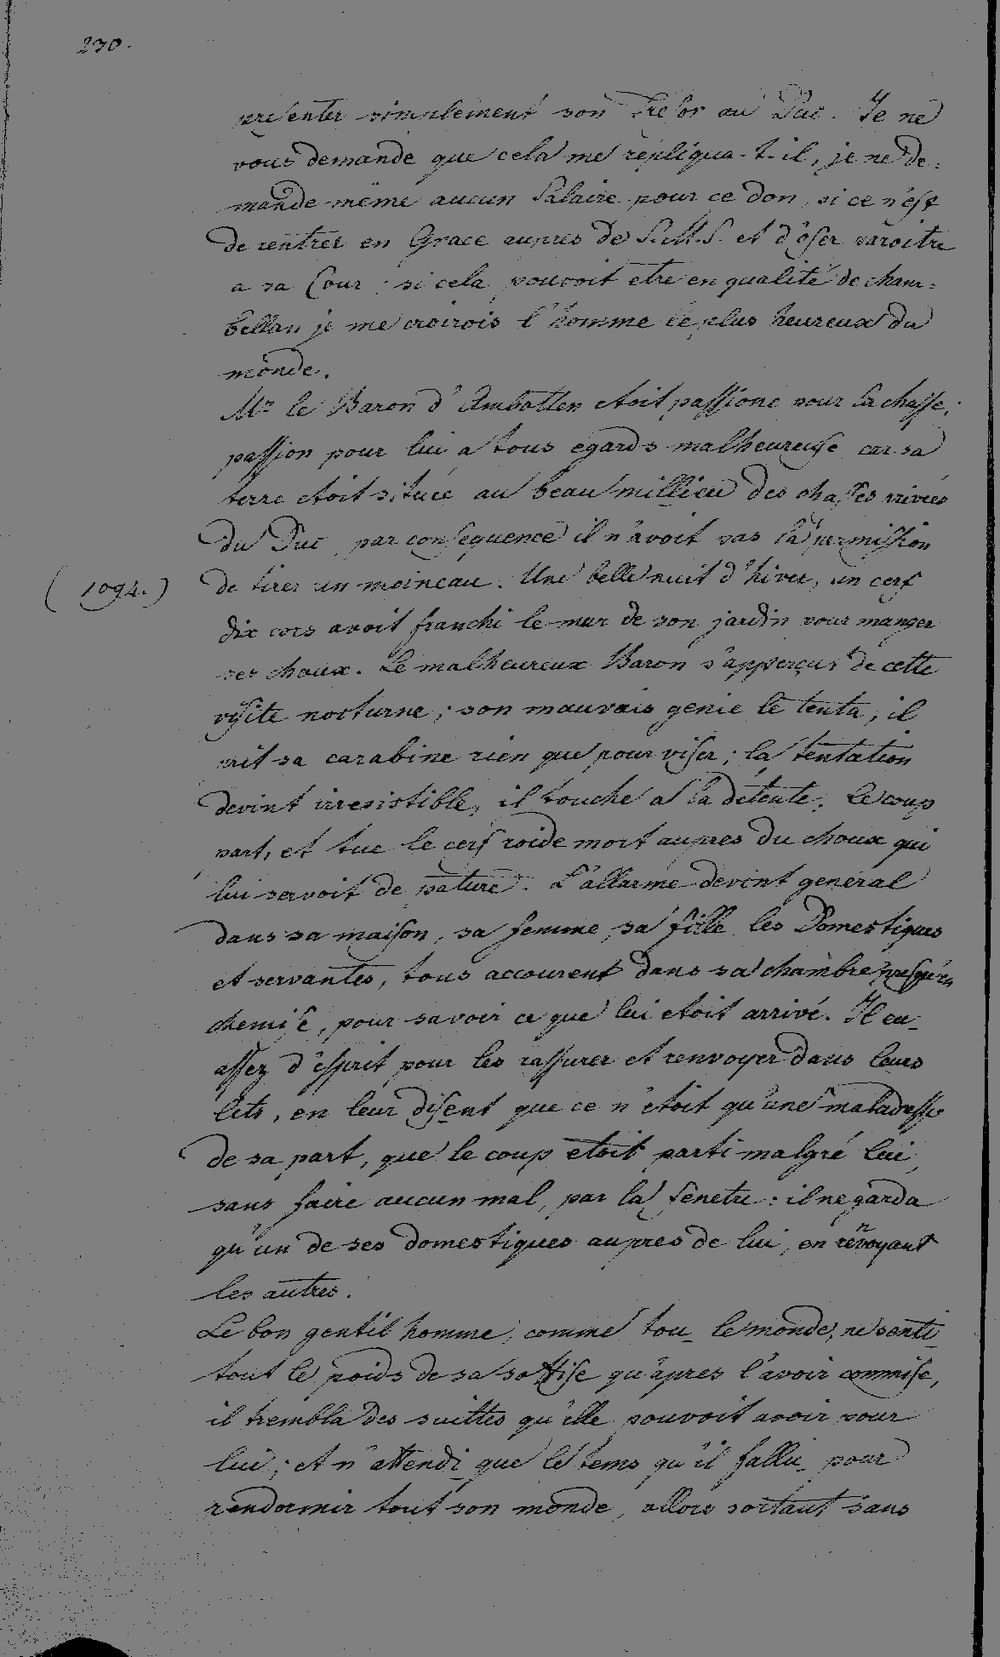 230.
presenter simplement son Tresor au Duc. Je ne
vous demande que cela me repliqua-t-il, je ne de=
mande même aucun Salaire pour ce don, si ce n'est
de rentrer en Grace aupres de S.A.S. et d'oser paroitre
a sa Cour; si cela pouvoit etre en qualité de cham=
bellan je me croirois l'homme le plus heureux du
monde.
Mr le Baron d'Ambotten etoit passioné pour la chasse,
passion pour lui a tous egards malheureuse car sa
terre etoit située au beau millieu des chasses privées
du Duc, par consequence il n'avoit pas la permission
(1094.) de tirer un moineau. Une belle nuit d'hiver, un cerf
dix cors avoit franchi le mur de son jardin pour manger
ses choux. Le malheureux Baron s'apperçut de cette
visite nocturne; son mauvais genie le tenta, il
prit sa carabine rien que pour viser; la tentation
devint irresistible, il touche a la détente, le coup
part, et tue le cerf roide mort aupres du choux qui
lui servoit de pature. L'allarme devint general
dans sa maison, sa femme, sa fille, les Domestiques
et servantes, tous accourent dans sa chambre presqu'en
chemise, pour savoir ce que lui etoit arrivé. Il eu
assez d'esprit pour les rassurer et renvoyer dans leurs
lits, en leur disent que ce n'etoit qu'une maladresse
de sa part, que le coup etoit parti malgré lui,
sans faire aucun mal, par la fenetre: il ne garda
qu'un de ses domestiques aupres de lui, en renvoyant
les autres.
Le bon gentil homme, comme tou le monde, ne senti
tout le poids de sa sottise qu'apres l'avoir commise,
il trembla des suittes qu'elle pouvoit avoir pour
lui; et n'attendi que le tems qu'il fallu pour
rendormir tout son monde, allors sortant sans